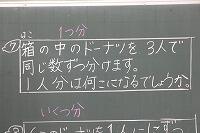 1つ分
はこ
⑦箱の中のドーナツを3人で
同じ数ずつ分けます。
1人分は何こになるでしょうか。
いくつ分
のドーナツを1人に